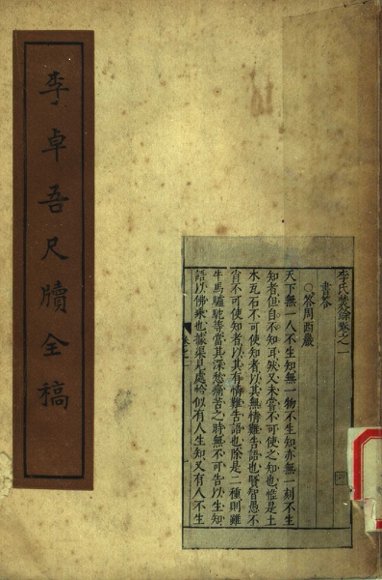 李卓吾尺牘全稿
李氏焚餘卷之一
書答
○答周西巖
天下無一人不生知無一物不生知亦無一刻不生
知者但自不知耳然又未嘗不可使之知也惟是土
木瓦石不可使知者以其無情難告語也賢智愚不
肖不可使知者以其有情難告語也除是二種則雖
牛馬驢駝等當其深愁痛苦之時無不可告以生知
語以佛乘也據渠見處恰似有人生知又有人不生